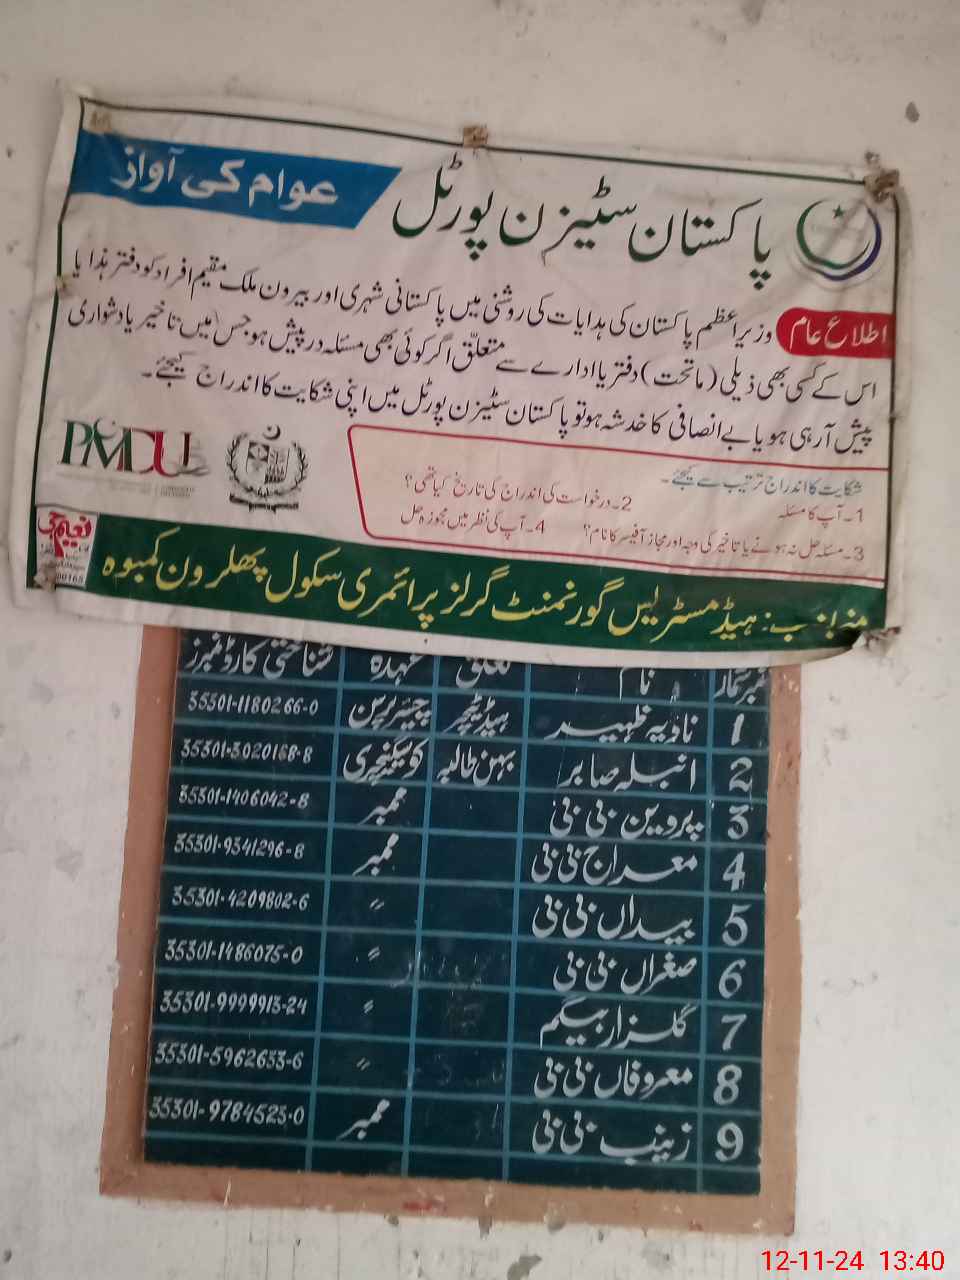 عوام کی آواز
پاکستان سٹیزن پورٹل
اطلاع عام
وزیراعظم پاکستان کی ہدایات کی روشنی میں پاکستانی شہری اور بیرون ملک مقیم افراد کو دفتر ہذا یا
اس کے کسی بھی ذیلی (ماتحت) دفتر یا ادارے سے متعلق اگر کوئی بھی مسئلہ درپیش ہو جس میں تاخیر یا دشواری
پیش آرہی ہو یا بے انصافی کا خدشہ ہو تو پاکستان سٹیزن پورٹل میں اپنی شکایت کا اندراج کیجئے۔
PMDU
شکایت کا اندراج ترتیب سے کیجئے۔
1۔ آپ کا مسئلہ 2۔ درخواست کی اندراج کی تاریخ کیا تھی؟
3۔ مسئلہ حل نہ ہونے یا تاخیر کی وجہ اور مجاز آفیسر کا نام؟ 4۔ آپ کی نظر میں مجوزہ حل
نعیم جی
منجانب: ہیڈ مسٹریس گورنمنٹ گرلز پرائمری سکول پھلرون کمبوہ
نمبر شمار نام تعلق عہدہ شناختی کارڈ نمبرز
1 نادیہ ظہید ہیڈ ٹیچر چیئرپرسن 35301-1180266-0
2 انیلہ صابر بہن طالبہ کو سیکٹیری 35301-3020168-8
3 پروین بی بی ممبر 35301-1406042-8
4 معراج بی بی ممبر 35301-9341296-8
5 بیداں بی بی 〃 35301-4209802-6
6 صغراں بی بی 〃 35301-1486075-0
7 گلزار بیگم 〃 35301-9999913-24
8 معروفاں بی بی 〃 35301-5962633-6
9 زینب بی بی ممبر 35301-9784523-0
12-11-24 13:40